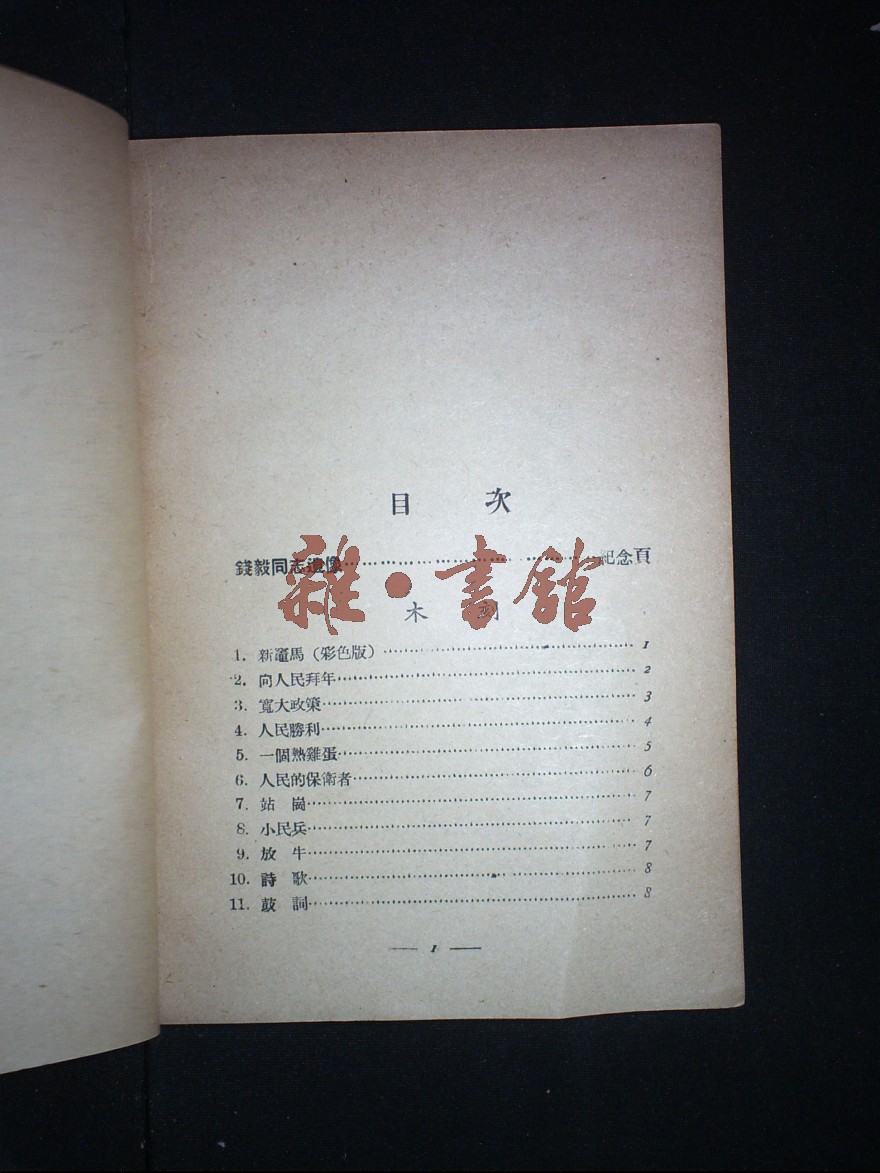 目 次
錢毅同志遺像……………………紀念頁
雜·書館
木 刻
1. 新竈馬（彩色版）……………………1
2. 向人民拜年……………………2
3. 寬大政策……………………3
4. 人民勝利……………………4
5. 一個熟雞蛋……………………5
6. 人民的保衛者……………………6
7. 站 崗……………………7
8. 小民兵……………………7
9. 放 牛……………………7
10. 詩 歌……………………8
11. 鼓 詞……………………8
— 1 —